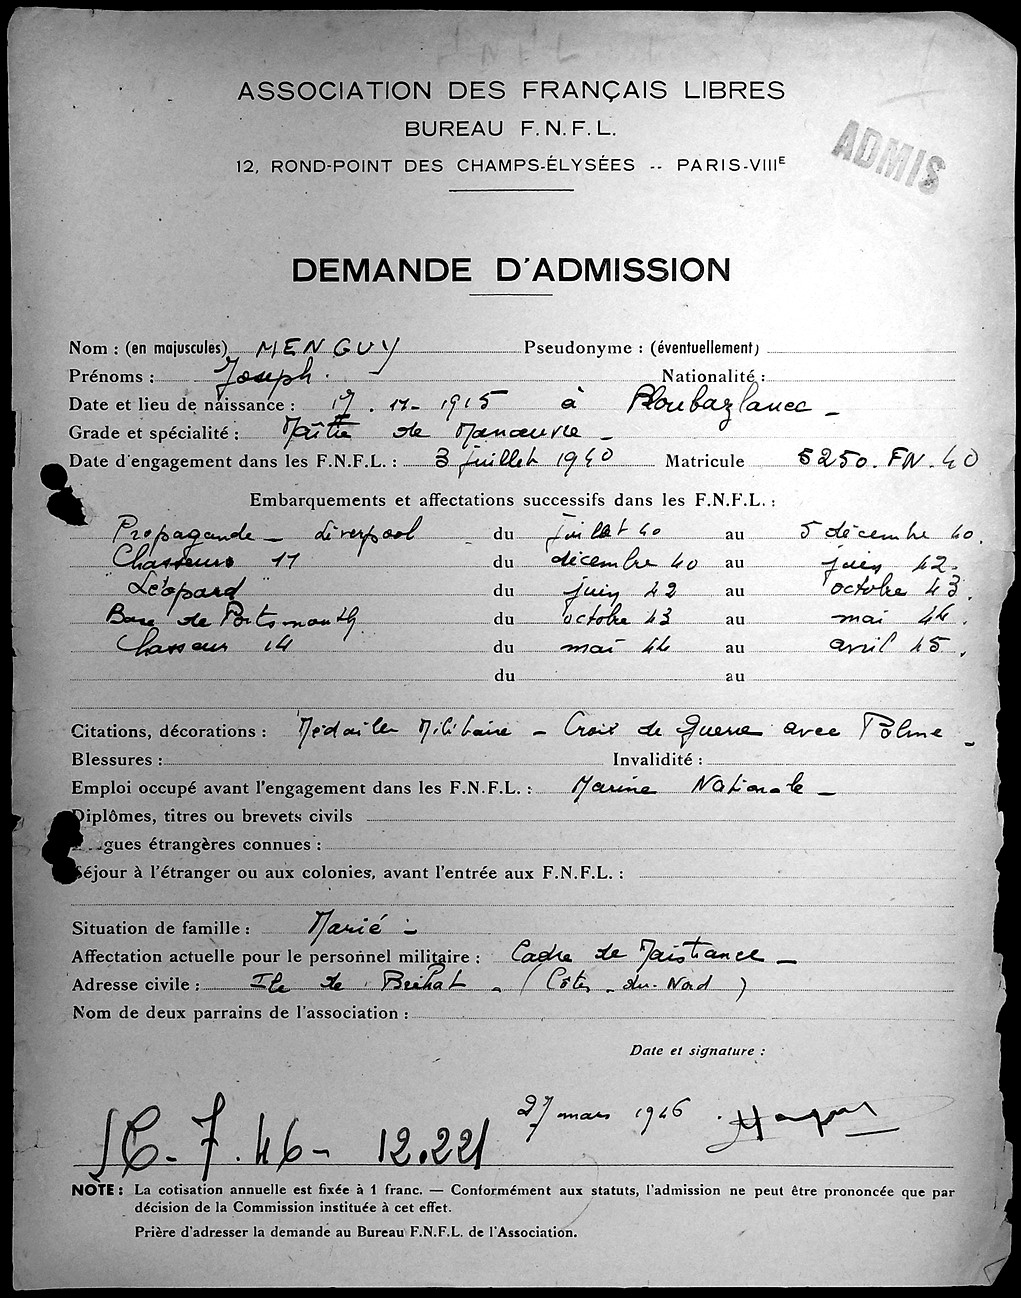 F N F L
ASSOCIATION DES FRANÇAIS LIBRES
BUREAU F.N.F.L.
12, ROND-POINT DES CHAMPS-ÉLYSÉES -- PARIS-VIIIE
ADMIS
DEMANDE D'ADMISSION
Nom : (en majuscules) MENGUY Pseudonyme : (éventuellement)
Prénoms : Joseph. Nationalité :
Date et lieu de naissance : 17. 11- 1915 à Ploubazlanec -
Grade et spécialité : Maître de Manœuvre -
Date d'engagement dans les F.N.F.L. : 3 juillet 1940 Matricule 5250. FN. 40
Embarquements et affectations successifs dans les F.N.F.L. :
Propagande - Liverpool du juillet 40 au 5 décembre 40.
Chasseurs 11 du décembre 40 au juin 42.
"Léopard" du juin 42 au octobre 43.
Base de Portsmouth du octobre 43 au mai 44.
Chasseur 14 du mai 44 au avril 45.
du au
Citations, décorations : Médaille Militaire - Croix de Guerre avec Palme -
Blessures : Invalidité :
Emploi occupé avant l'engagement dans les F.N.F.L. : Marine Nationale -
Diplômes, titres ou brevets civils
gues étrangères connues :
Séjour à l'étranger ou aux colonies, avant l'entrée aux F.N.F.L. :
Situation de famille : Marié -
Affectation actuelle pour le personnel militaire : Cadre de Maistrance -
Adresse civile : Ile de Bréhat - (Côtes-du-Nord)
Nom de deux parrains de l'association :
Date et signature :
27 mars 1946.
7.46- 12.221
NOTE : La cotisation annuelle est fixée à 1 franc. — Conformément aux statuts, l'admission ne peut être prononcée que par
décision de la Commission instituée à cet effet.
Prière d'adresser la demande au Bureau F.N.F.L. de l'Association.